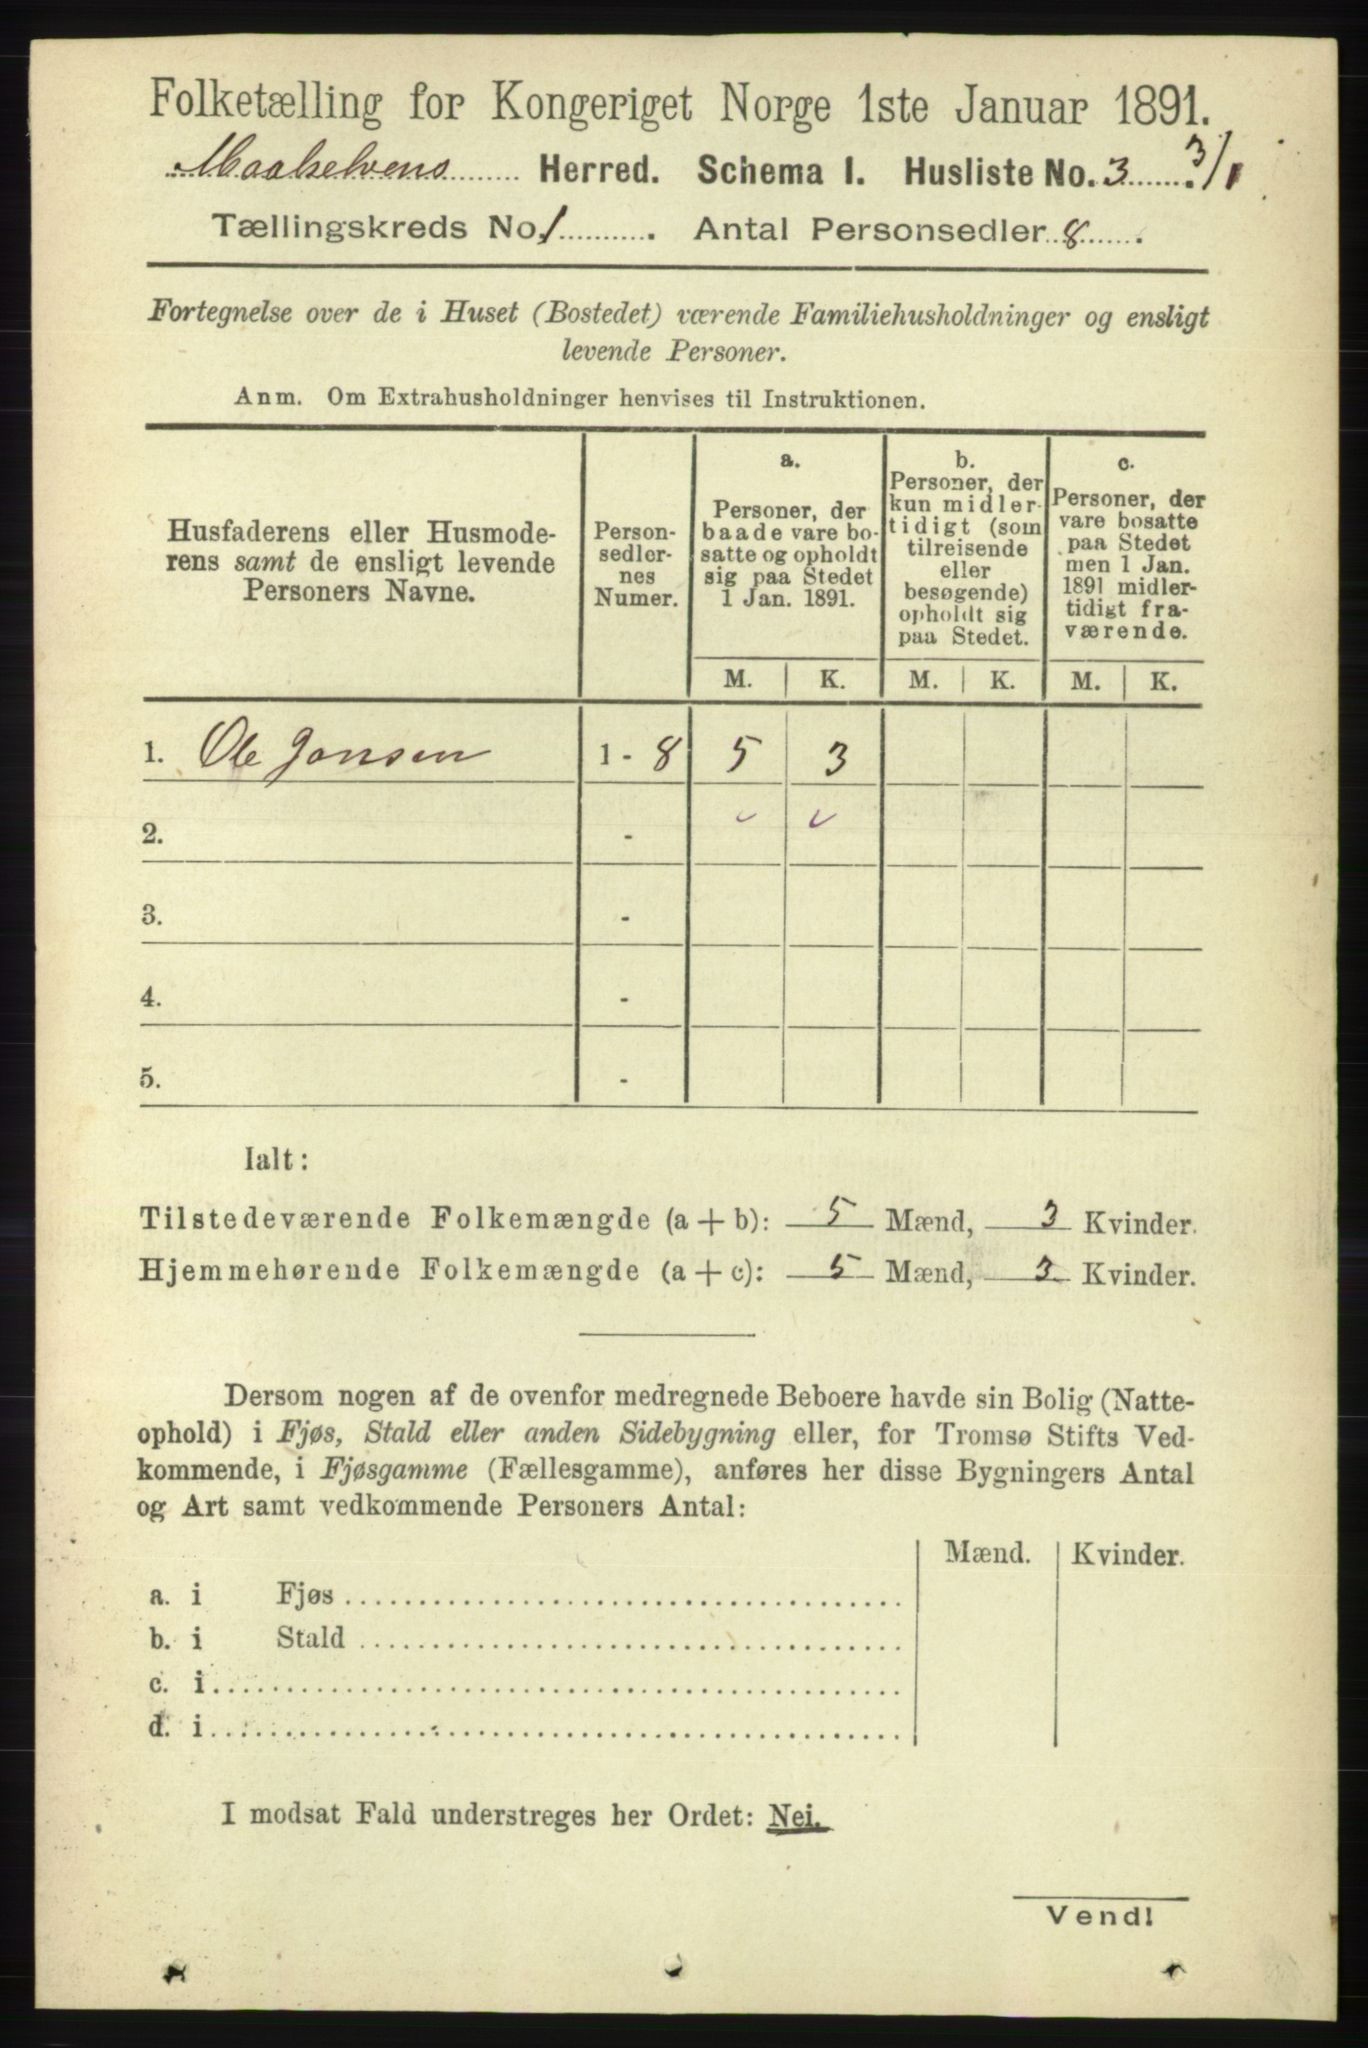 Folketælling for Kongeriget Norge 1ste Januar 1891.
Maalselvens Herred. Schema I. Husliste No. 3 3/1
Tællingskreds No. 1. Antal Personsedler 8.
Fortegnelse over de i Huset (Bostedet) værende Familiehusholdninger og ensligt
levende Personer.
Anm. Om Extrahusholdninger henvises til Instruktionen.
Husfaderens eller Husmode-
rens samt de ensligt levende
Personers Navne.
Person-
sedler-
nes
Numer.
a.
Personer, der
baade vare bo-
satte og opholdt
sig paa Stedet
1 Jan. 1891.
b.
Personer, der
kun midler-
tidigt (som
tilreisende
eller
besøgende)
opholdt sig
paa Stedet.
c.
Personer, der
vare bosatte
paa Stedet
men 1 Jan.
1891 midler-
tidigt fra-
værende.
M. K. M. K. M. K.
1. Ole Jonsen 1 - 8 5 3
2. -
3. -
4. -
5. -
Ialt:
Tilstedeværende Folkemængde (a + b): 5 Mænd, 3 Kvinder.
Hjemmehørende Folkemængde (a + c): 5 Mænd, 3 Kvinder.
Dersom nogen af de ovenfor medregnede Beboere havde sin Bolig (Natte-
ophold) i Fjøs, Stald eller anden Sidebygning eller, for Tromsø Stifts Ved-
kommende, i Fjøsgamme (Fællesgamme), anføres her disse Bygningers Antal
og Art samt vedkommende Personers Antal:
Mænd. Kvinder.
a. i Fjøs
b. i Stald
c. i
d. i
I modsat Fald understreges her Ordet: Nei.
Vend!